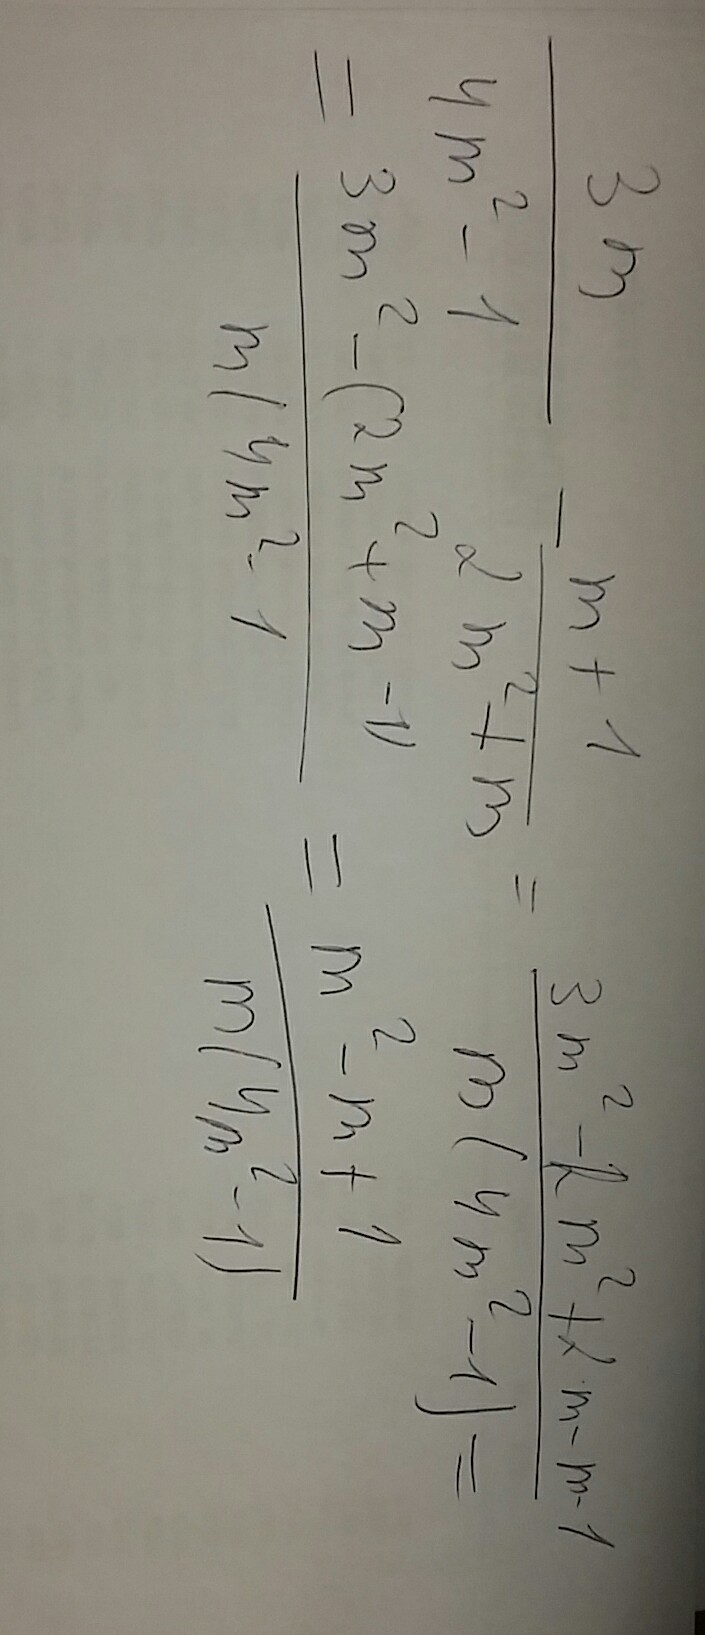 3m/(4m² - 1) - (m + 1)/(2m² + m) = (3m² - 2m² + 2m - m - 1)/(m(4m² - 1)) =
= (3m² - (2m² + m - 1))/(m(4m² - 1) = (m² - m + 1)/(m(4m² - 1))